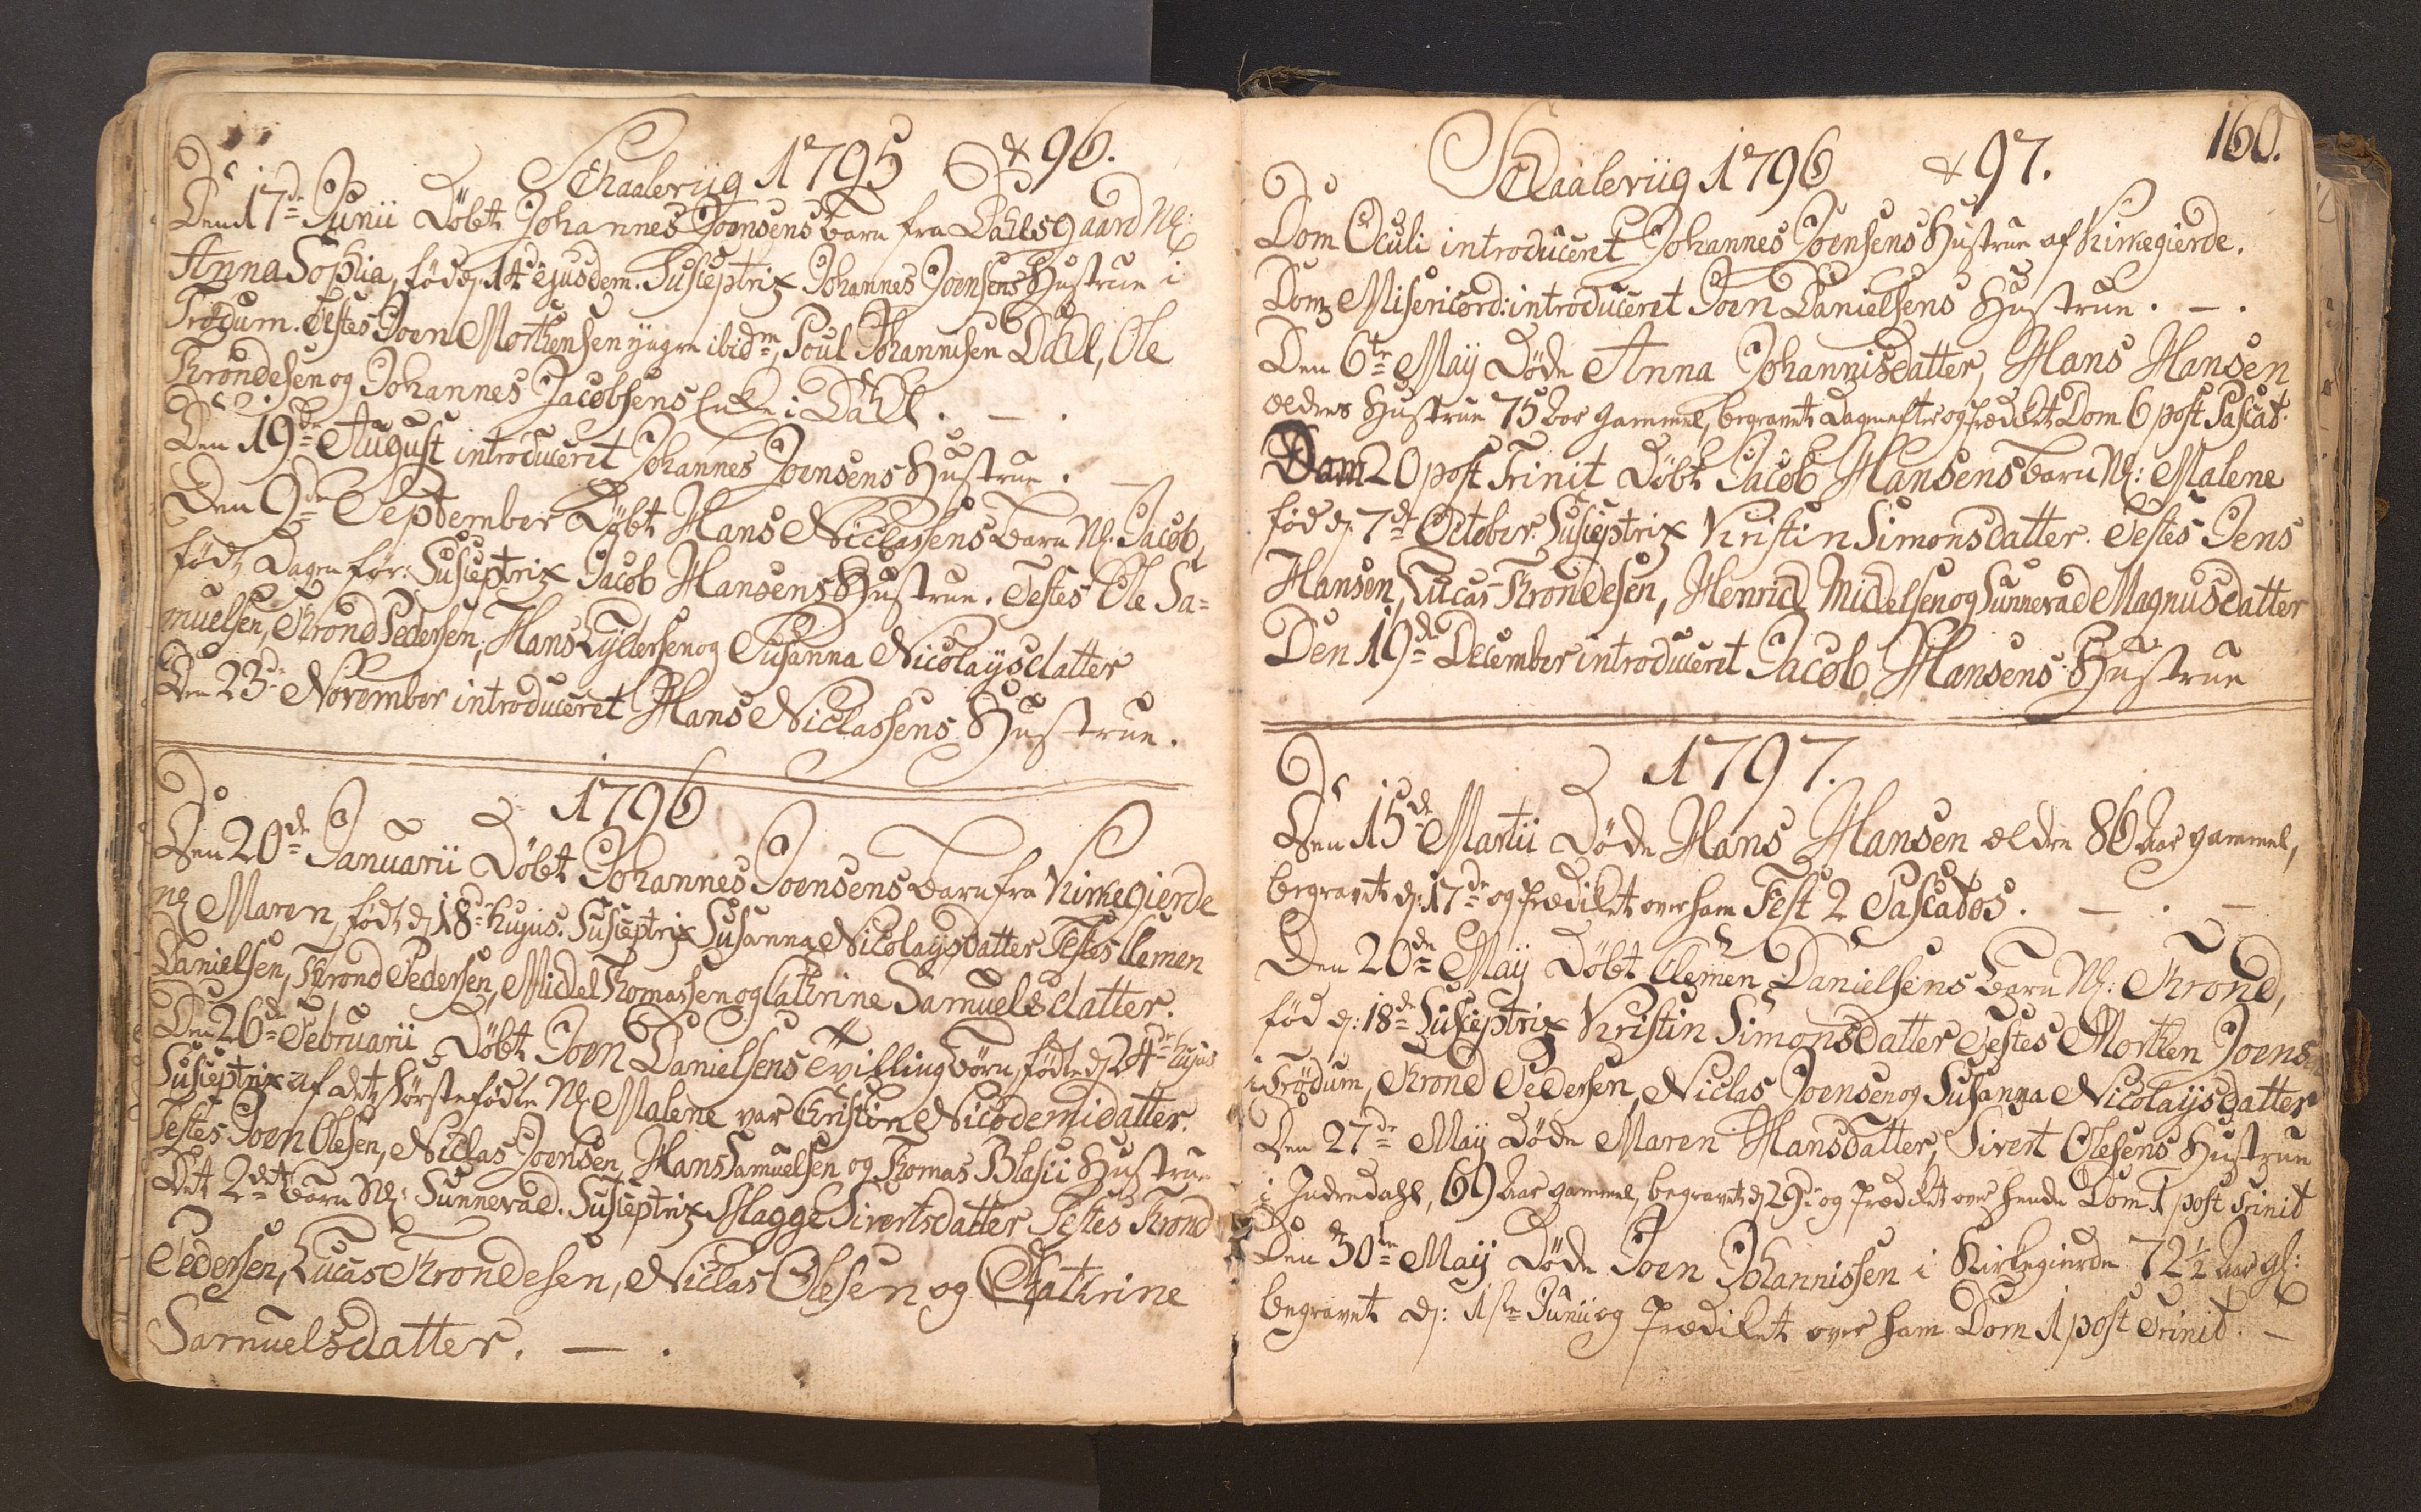 Schaalevig 1795 & 96.
Den 17de Junii Døbt Johannes Joensens barn fra Dahlsgaard N:
Anna Sophia, fød d. 14de ejusdem. Susceptrix Johannes Joensens Hustrue i
Trødum. Testes Joen Mortensen yngre ibidm, Poul Johannesen Dahl, Ole
Trondesen og Johannes Jacobsens Enke i Dahl. — .
Den 19de August introduceret Johannes Joensens Hustrue. —
Den 9de September Døbt Hans Niclassens barn N. Jacob,
født Dagen før: Susceptrix Jacob Hansens Hustrue. Testes Ole Sa=
muelsen, Trond Pedersen, Hans Gyllersen og Susanna Nicolaysdatter
Den 23de November introduceret Hans Niclassens Hustrue.
1796
Den 20de Januarii Døbt Johannes Joensens barn fra Kirkegierde
N: Maren, født d. 18de hujus. Susceptrix Susanna Nicolaysdatter Testes Clemen
Danielsen, Trond Pedersen, Michel Thomassen og Cathrine Samuelsdatter.
Den 26de Februarii Døbt Joen Danielsens Tvilling børn, fødte d. 24de hujus
Susceptrix af det førstefødte N: Malene var Christin Nicodemidatter.
Testes Joen Olesen, Niclas Joensen, Hans Samuelsen og Thomas Blasii Hustrue
Det 2det barn N: Sunnevad. Susceptrix Magge Sivertsdatter Testes Trond
Pedersen, Lucas Trondesen, Niclas Olesen og Cathrine
Samuelsdatter. — .
Schaalevig 1796 & 97.
160.
Dom Oculi introduceret Johannes Joensens Hustrue af Kirkegierde.
Dom Misericord: introduceret Joen Danielsens Hustrue. — .
Den 6te Maij Døde Anna Johannisdatter, Hans Hansen
ældres Hustrue 75 Aar gammel, begravet dagen efter og prædiket Dom 6 post Pascat.
Dom 20 post Trinit Døbt Jacob Hansens barn N: Malene
fød d. 7de October. Susceptrix Kristin Simonsdatter. Testes Jens
Hansen, Lucas Trondesen, Henrich Michelsen og Sunnevad Magnusdatter
Den 19de December introduceret Jacob Hansens Hustrue
1797.
Den 15de Martii Døde Hans Hansen ældre 86 Aar gammel,
begravet d: 17de og prædiket over ham Fest 2 Pascatos. — . —
Den 20de Maij Døbt Clemen Danielsens barn N: Trond,
fød d: 18de Susceptrix Kristin Simonsdatter Testes Morten Joensen
i Trødum, Trond Pedersen, Niclas Joensen og Susanna Nicolaysdatter
Den 27de Maij Døde Maren Hansdatter, Sivert Olesens Hustrue
i Indredahl, 69 Aar gammel, begravet d 29de og prædiket over hende Dom 1 post Trinit
Den 30te Maij Døde Joen Johannissen i Kirkegierde 72½ Aar gl:
begravet d: 1ste Junii og prædiket over ham Dom 1 post Trinit. —